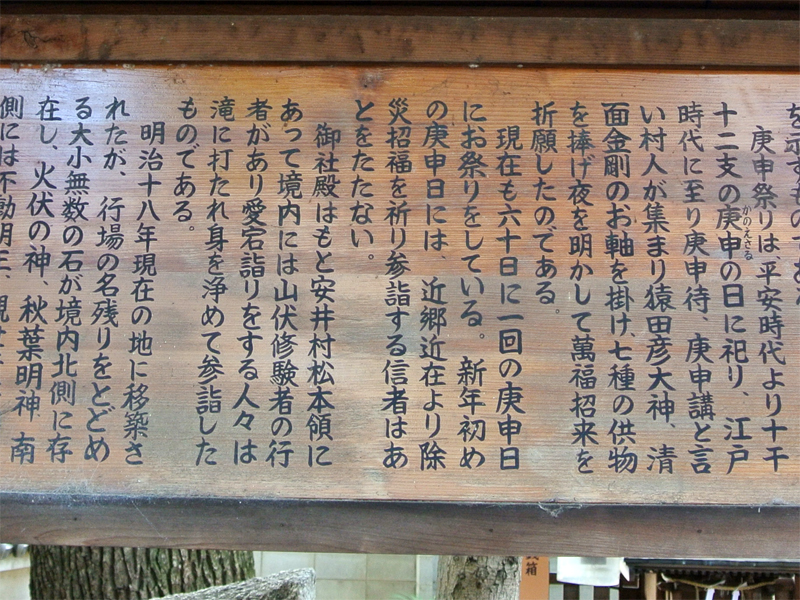 を示すものであり
庚申祭りは、平安時代より十干
十二支の庚申の日に祀り、江戸
かのえさる
時代に至り庚申待、庚申講と言
い村人が集まり猿田彦大神、清
面金剛のお軸を掛け、七種の供物
を捧げ夜を明かして萬福招来を
祈願したのである。
現在も六十日に一回の庚申日
にお祭りをしている。新年初め
の庚申日には、近郷近在より除
災招福を祈り参詣する信者はあ
とをたたない。
御社殿はもと安井村松本領に
あって境内には山伏修験者の行
者があり愛宕詣りをする人々は
滝に打たれ身を浄めて参詣した
ものである。
明治十八年現在の地に移築さ
れたが、行場の名残りをとどめ
る大小無数の石が境内北側に存
在し、火伏の神、秋葉明神 南
側には不動明王、観
箱